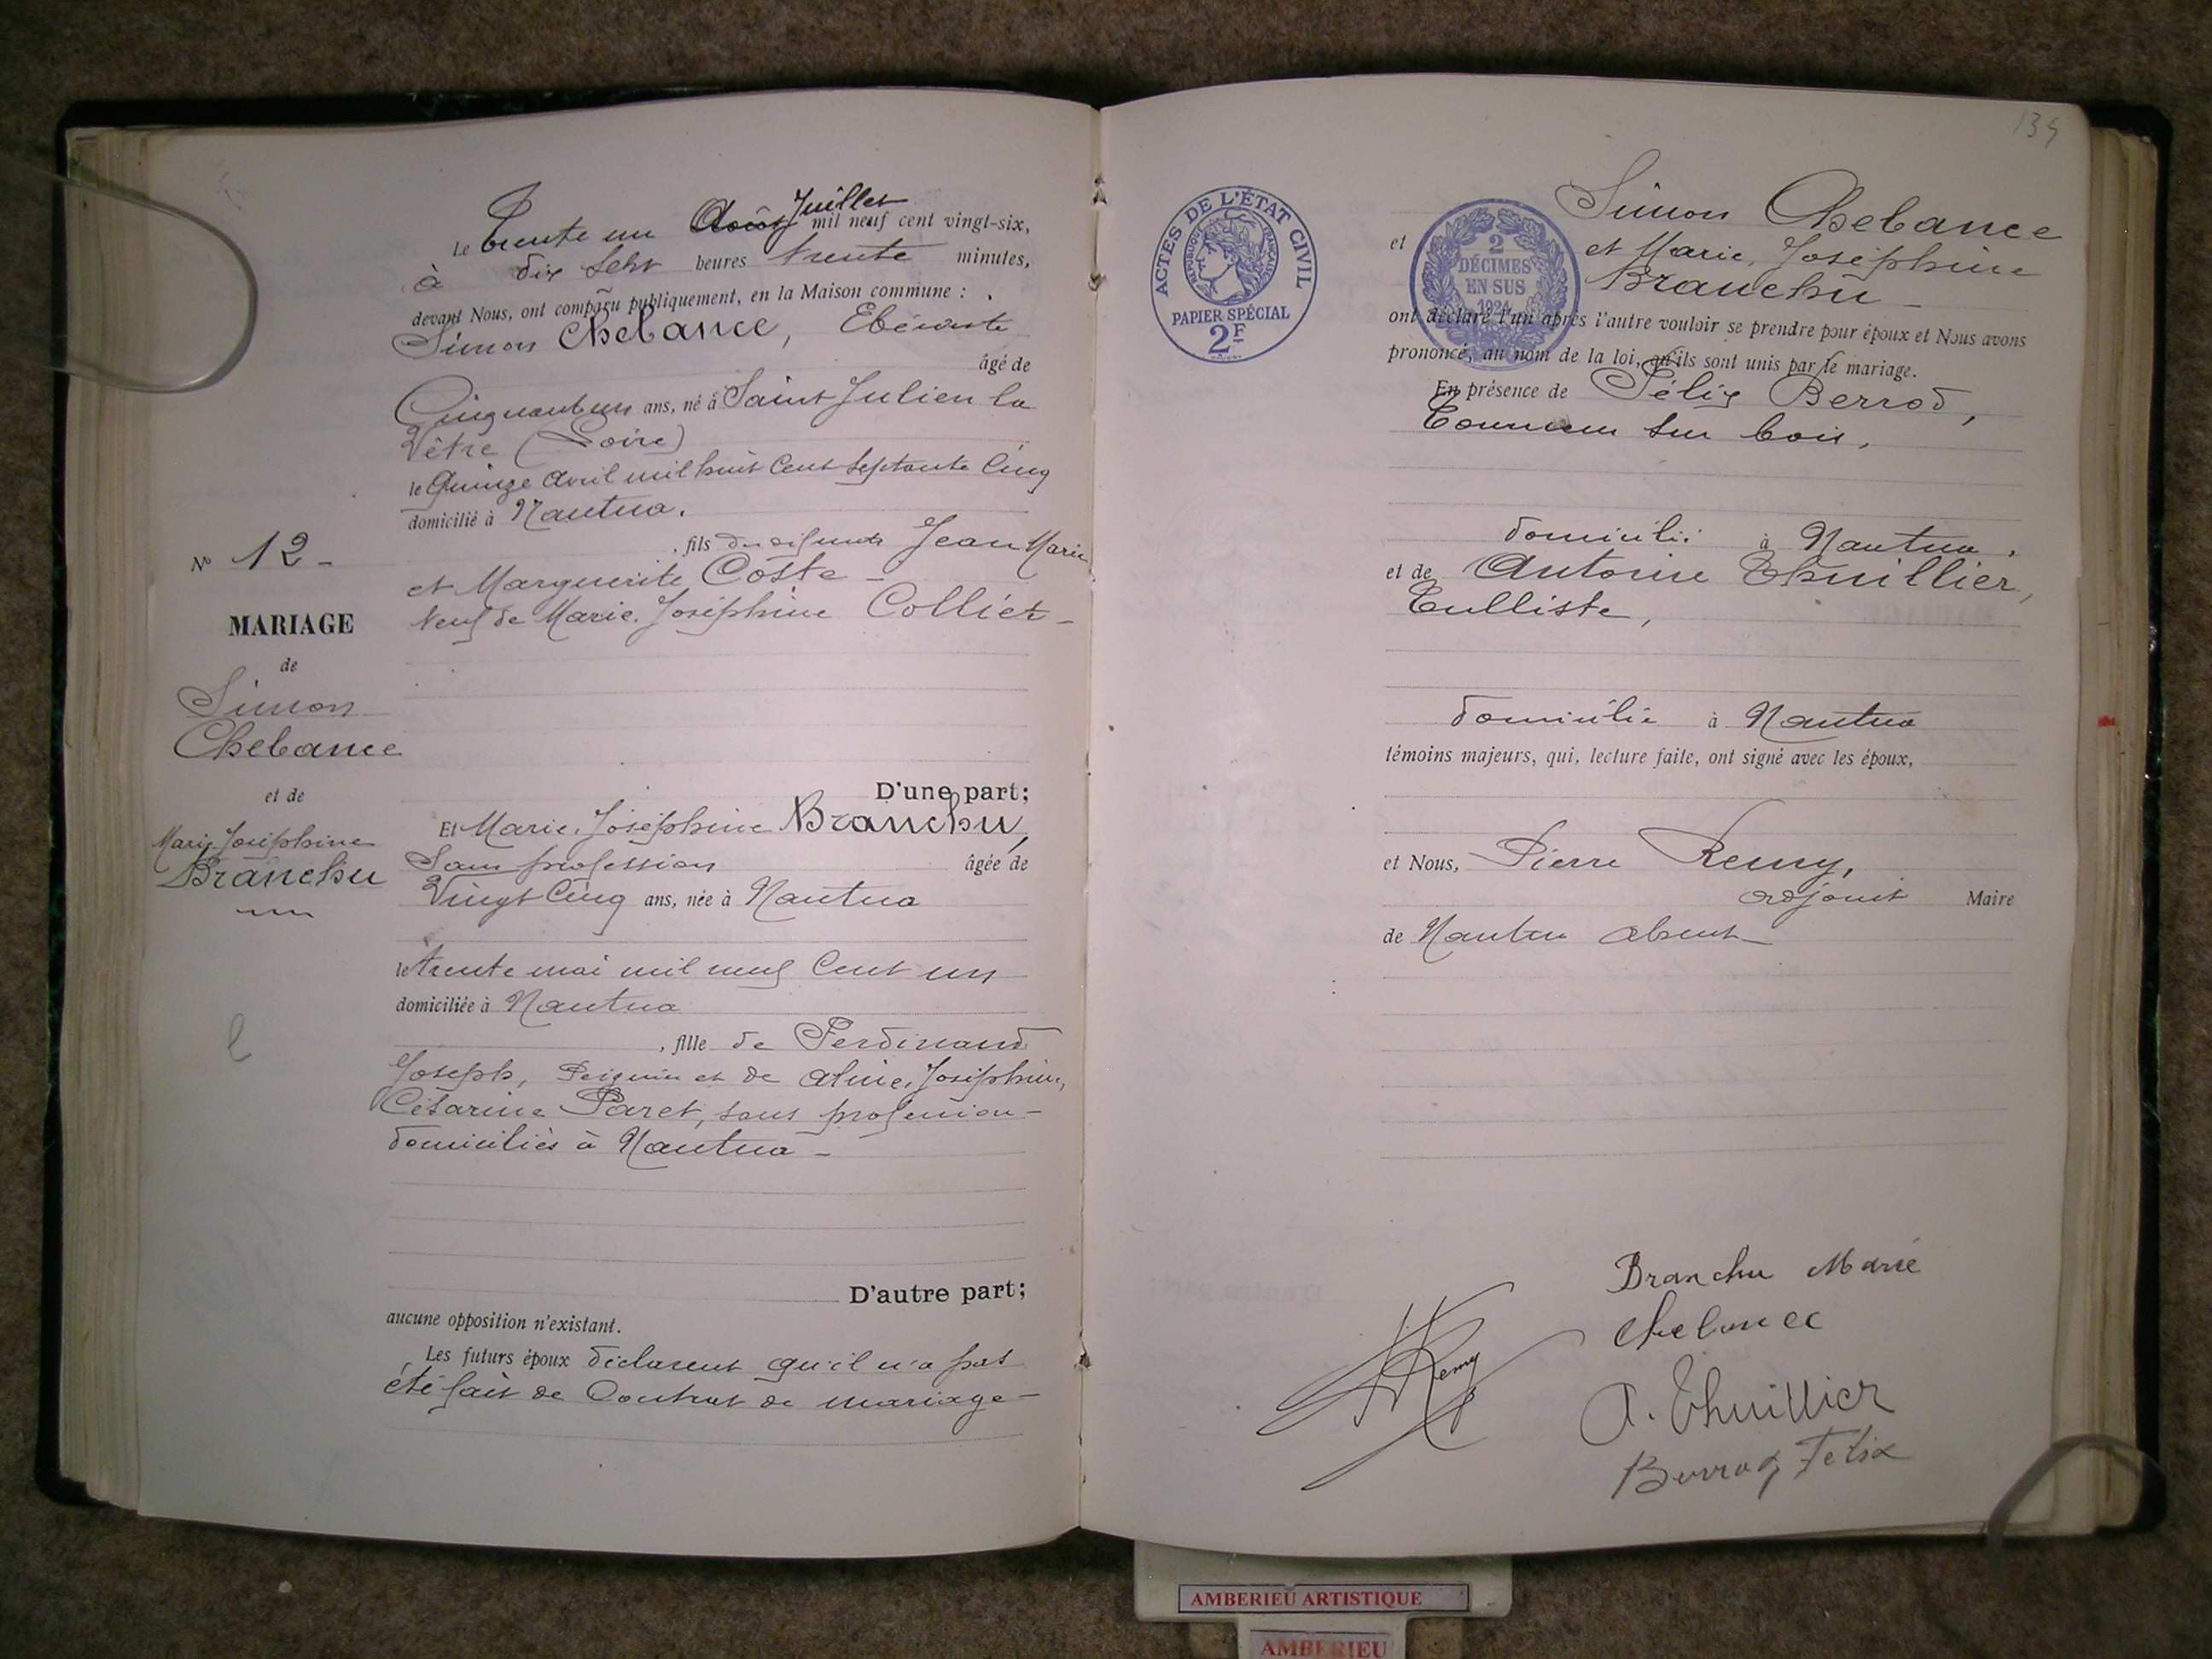 Le trente un Août Juillet mil neuf cent vingt-six,
à dix sept heures trente minutes,
devant Nous, ont comparu publiquement, en la Maison commune :
Simon Chebance, Ebéniste
âgé de
Cinquante un ans, né à Saint Julien la
Vêtre (Loire)
le Quinze avril mil huit cent septante cinq
domicilié à Nantua.
, fils des défunts Jean Marie
et Marguerite Coste -
Veuf de Marie Joséphine Colliet -
D'une part;
N° 12 -
MARIAGE
de
Simon
Chebance
et de
Marie Joséphine
Branchu
Et Marie Joséphine Branchu,
Sans profession âgée de
Vingt cinq ans, née à Nantua
le trente mai mil neuf cent un
domiciliée à Nantua
, fille de Ferdinand
Joseph, et de Aline, Joséphine,
Césarine Paret, sans profession -
domiciliés à Nantua -
D'autre part;
aucune opposition n'existant.
Les futurs époux déclarent qu'il n'a pas
été fait de Contrat de mariage -
135
ACTES DE L'ÉTAT CIVIL
RÉPUBLIQUE FRANÇAISE
PAPIER SPÉCIAL
2F
2
DÉCIMES
EN SUS
1924
Simon Chebance
et et Marie, Joséphine
Branchu -
ont déclaré l'un après l'autre vouloir se prendre pour époux et Nous avons
prononcé, au nom de la loi, qu'ils sont unis par le mariage.
En présence de Félix Berrod,
Tourneur sur bois,
domicilié à Nantua,
et de Antoine Thuillier,
Tulliste,
domicilié à Nantua
témoins majeurs, qui, lecture faite, ont signé avec les époux,
et Nous, Pierre Remy,
adjoint Maire
de Nantua absent -
Branchu Marie
Chebance
Remy
A. Thuillier
Berrod Felix
AMBERIEU ARTISTIQUE
AMBERIEU